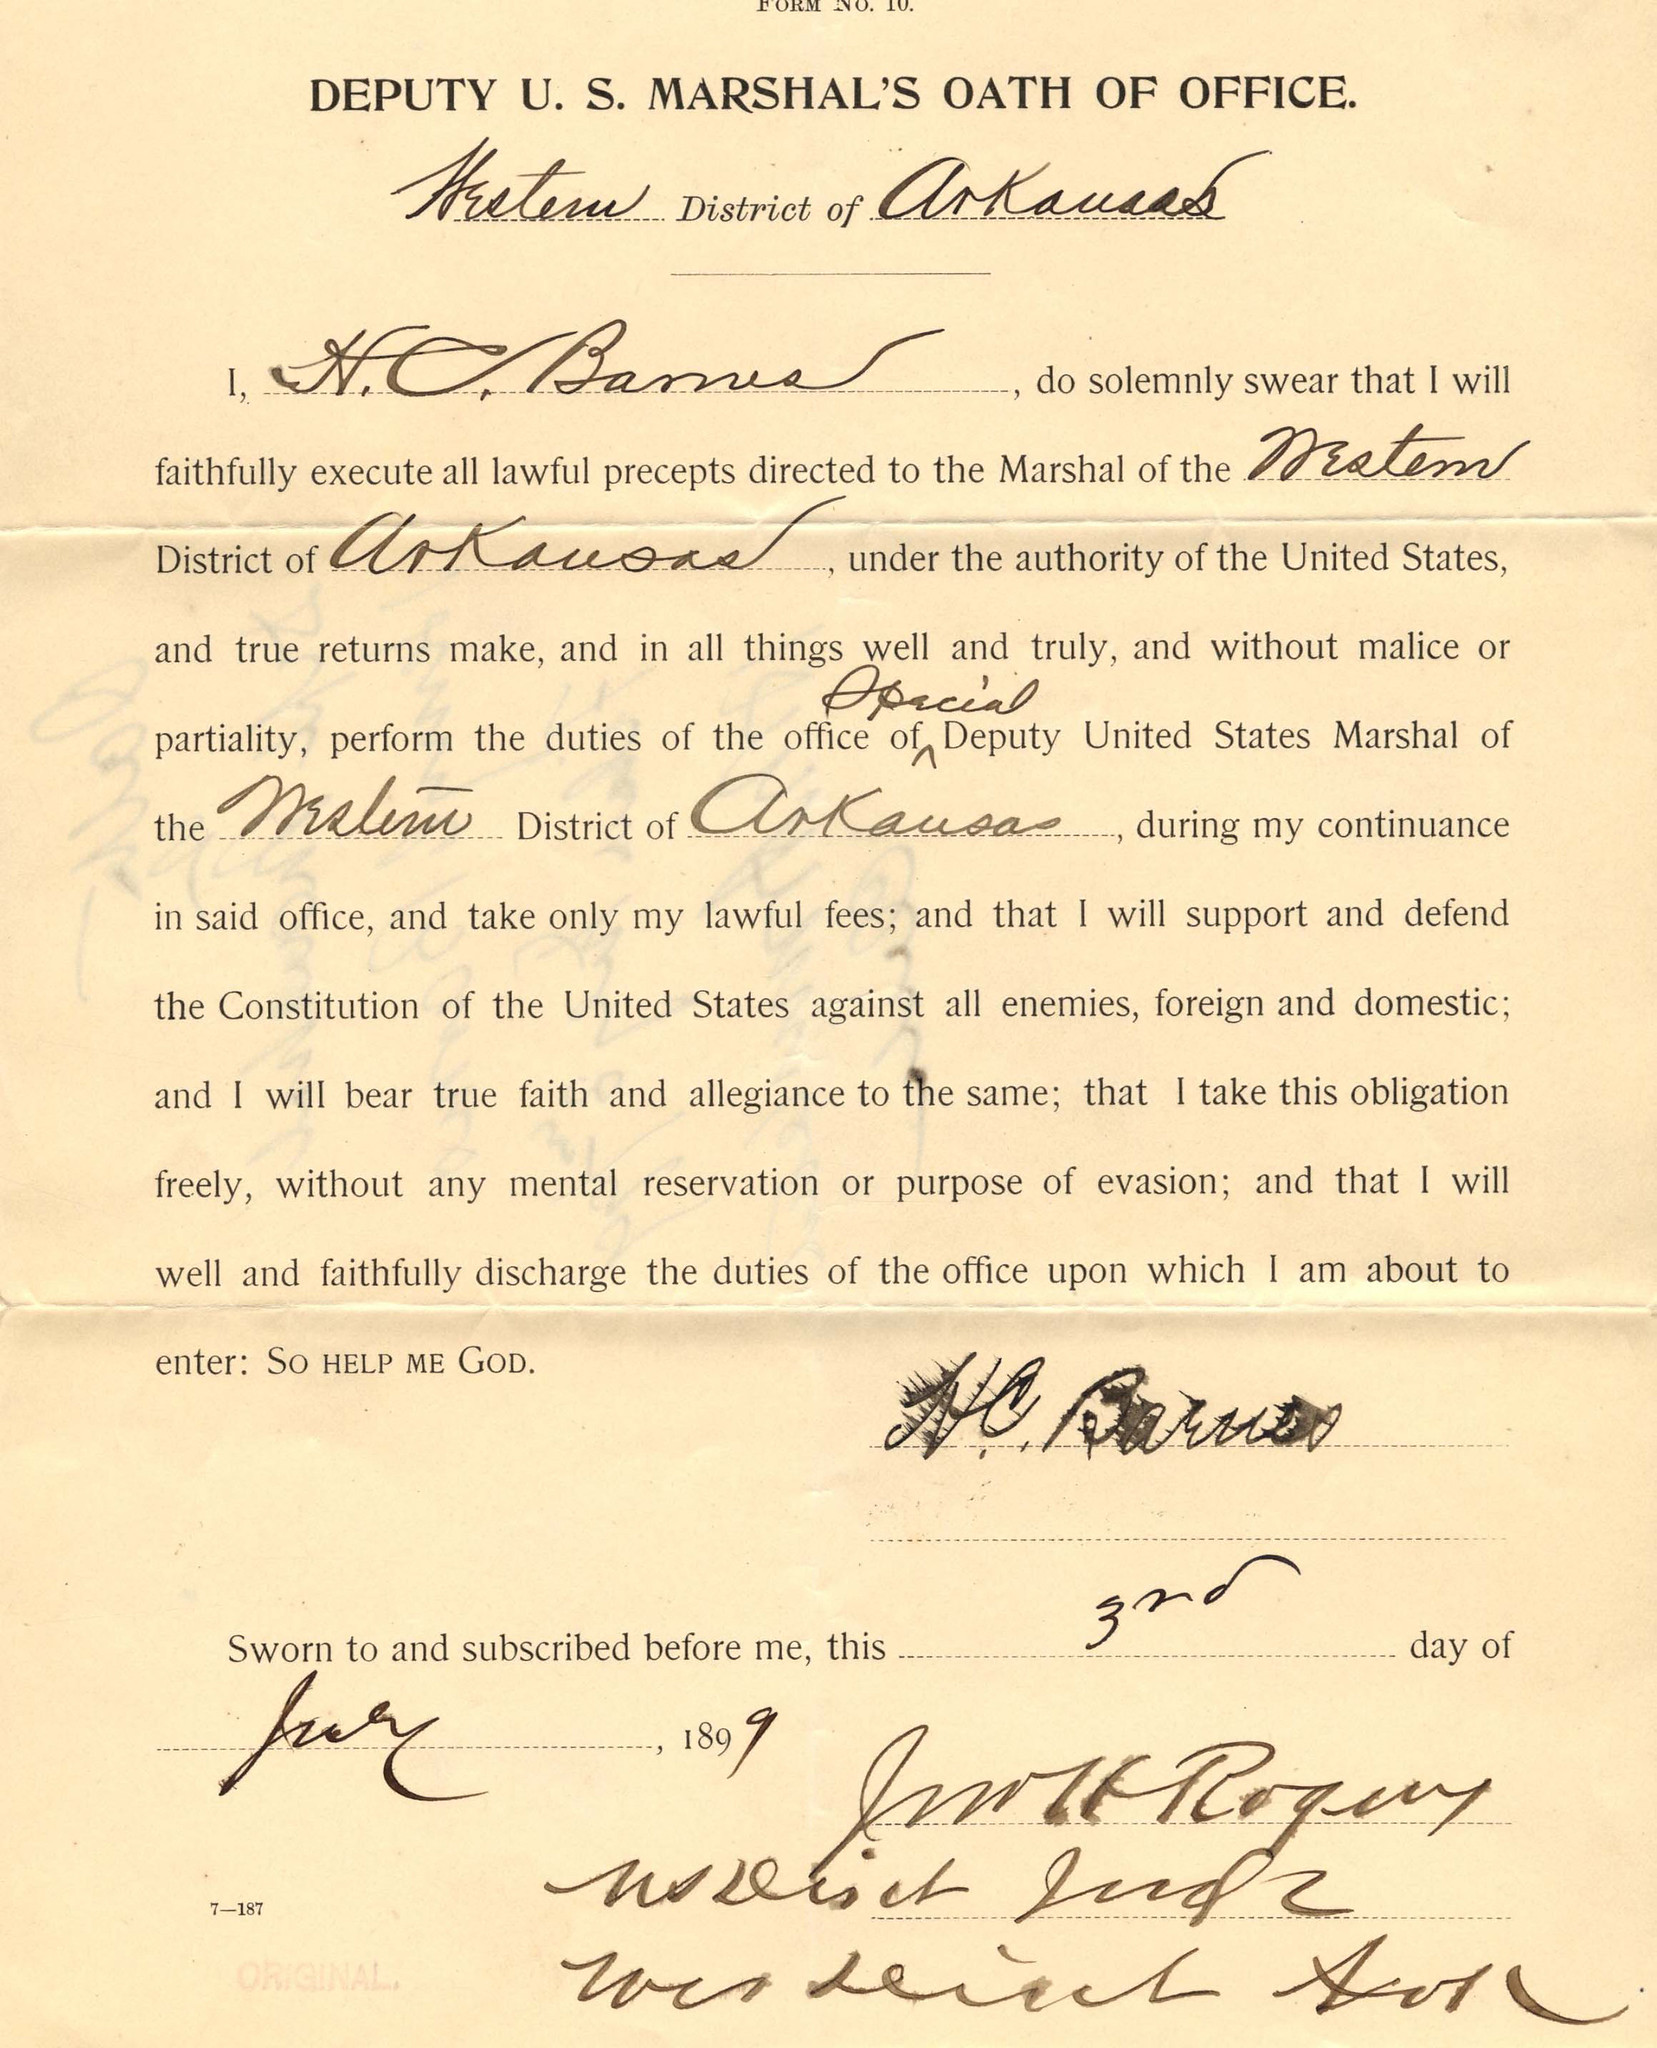 FORM NO. 10.
DEPUTY U. S. MARSHAL'S OATH OF OFFICE.
Western District of Arkansas
I, H. C. Barnes, do solemnly swear that I will
faithfully execute all lawful precepts directed to the Marshal of the Western
District of Arkansas, under the authority of the United States,
and true returns make, and in all things well and truly, and without malice or
Special
partiality, perform the duties of the office of ^ Deputy United States Marshal of
the Western District of Arkansas, during my continuance
in said office, and take only my lawful fees; and that I will support and defend
the Constitution of the United States against all enemies, foreign and domestic;
and I will bear true faith and allegiance to the same; that I take this obligation
freely, without any mental reservation or purpose of evasion; and that I will
well and faithfully discharge the duties of the office upon which I am about to
enter: SO HELP ME GOD.
H.C. Barnes
Sworn to and subscribed before me, this 3rd day of
July, 1899
Jno H Rogers
US Dist Judge
7—187
Wes Dist Ark
ORIGINAL.